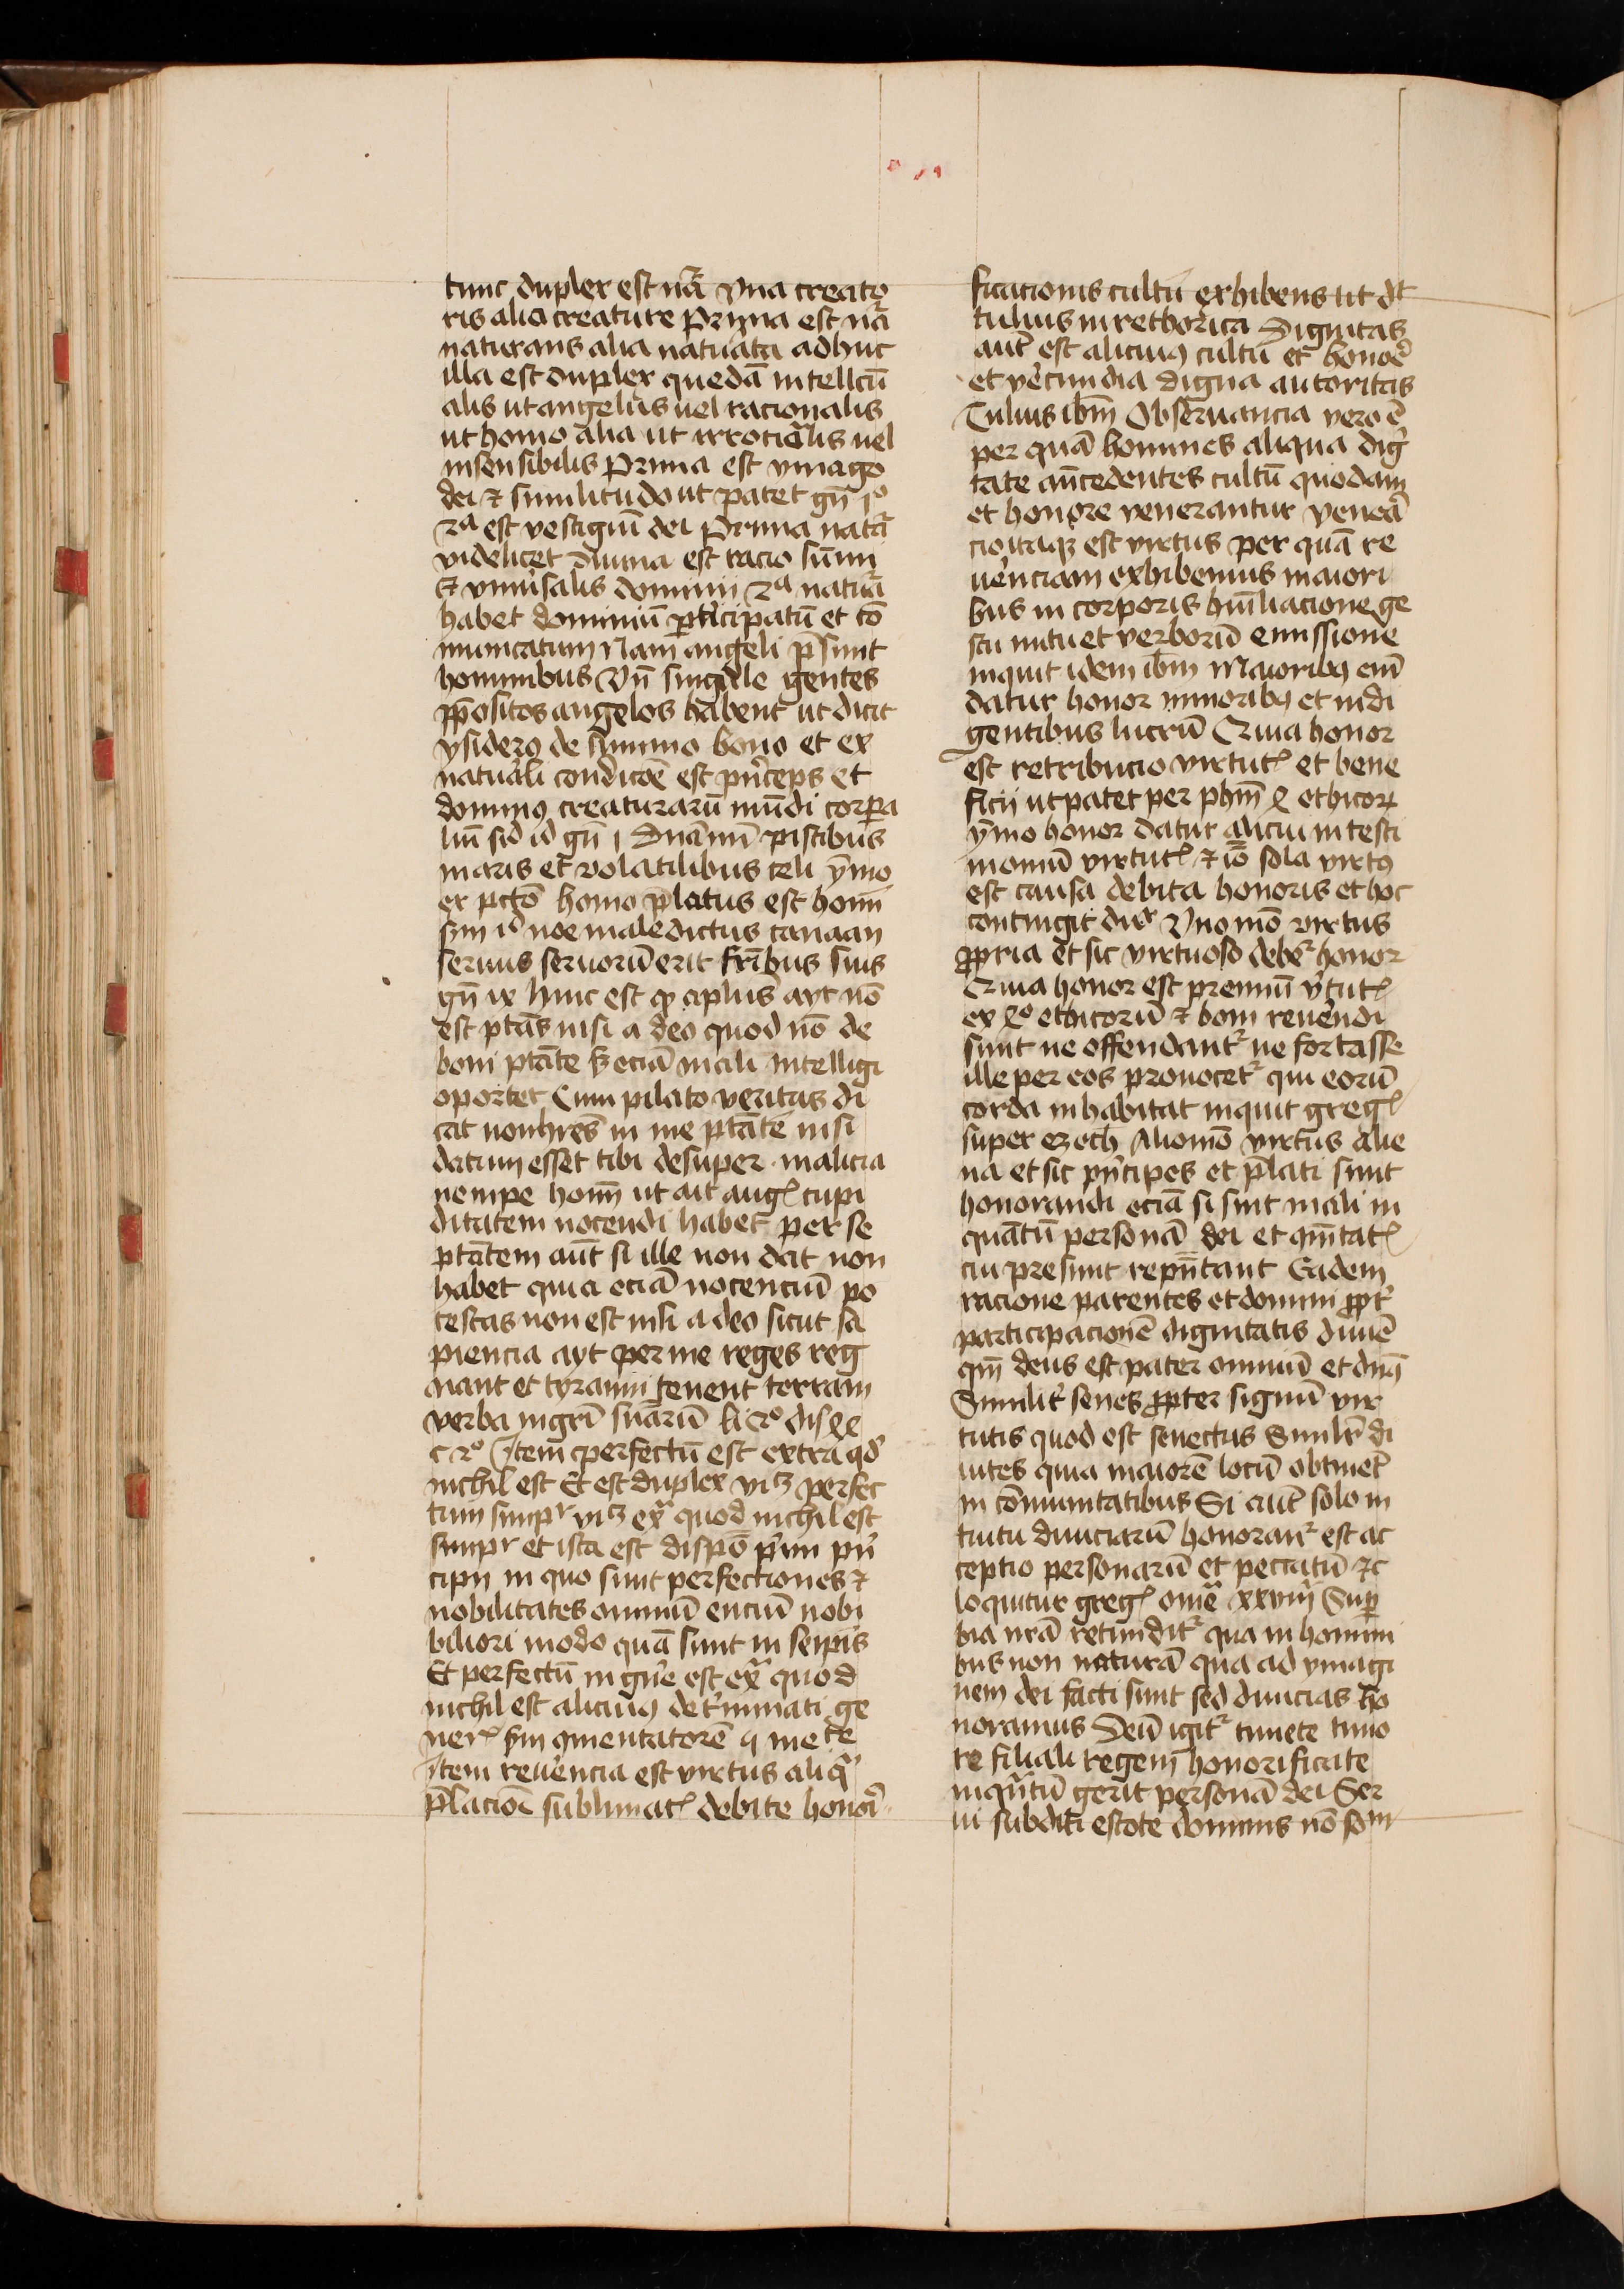 tunc duplex est nãa Vna creato
ris alia creature Prima est nãa
naturans alia natuãta adhuc
illa est duplex quedã intellcũ
alis ut angelus uel racionalis
ut homo alia ut irrotiãlis uel
insensibilis Prima est ymago
dei ⁊ similitudo ut patet gñ jº
2ª est vestigiũ dei Prima natã
videlicet diuina est racio sũmi
& vniũsalis dominij 2ª natuã
habet dominiũ pticipatũ et cõ
municatum Nam angeli p̃sunt
hominibus Vñ singule gentes
p̃positos angelos habent ut dicit
ysiderꝰ de summo bono et ex
natuãli condicoẽ est pñceps et
dominꝰ creaturarũ mũdi corpa
liũ sic̃ ĩd gñ j Dnãmĩ piscibus
maris et volatilibus celi ẏmo
ex pctõ homo p̃latus est homĩ
sm̃ id noe maledictus canaan
seruus seruorũ erit fr̃ibus suis
gñ ix hinc est ꝙ aplus ayt nõ
est ptãs nisi a deo quod nõ de
boni ptãte s̃ eciã mali intelligi
oportet Cum pilato veritas di
cat non hr̃es in me ptãtẽ nisi
datum esset tibi desuper malicia
nempe homĩ ut ait augꝭ cupi
ditatem nocendi habet per se
ptãtem aũt si ille non dat non
habet quia eciã nocenciũ po
testas non est nisi a deo sicut sa
piencia ayt per me reges reg
nant et tyranni tenent terram
verba mgrĩ sñiarũ li 2º dis xl
c 2º Item perfectũ est extra qd̃
nichil est Et est duplex vi3 perfec
tum simpr vi3 exª quod nichil est
simpr et ista est dispõ p̃mi pñ
cipij in quo sunt perfectiones ⁊
nobilitates omniũ enciũ nobi
biliori modo quã sunt in seip̃is
Et perfectũ in gñe est exª quod
nichil est alicuiꝰ det̃minati ge
nerꝭ s̃m ꝯmentatorẽ 4 methe
Item reuẽrencia est virtus aliqª
p̃lacioẽ sublimatꝭ debite honoĩ
ficacionis cultũ exhibens ut d̃t
tulius in rethorica Dignitas
aut̃ est alicuiꝰ cultũ et honoẽ
et vẽcundia digna autoritas
Tulius ibm̃ Obseruancia vero ẽ
per quã homines aliqua dig̃
tate añcedentes cultũ quodam
et honore venerantur veneã
cio itaqꝫ est virtus per quã re
uẽnciam exhibemus maiori
bus in corporis hũiliacione ge
stu nutu et verborũ emissione
inquit idem ibm̃ Maioribꝰ eiñ
datur honor minoribꝰ et indi
gentibus lucrũ Quia honor
est retribucio virtutꝭ et bene
ficij ut patet per phm̃ 8 ethicoꝝ
ẏmo honor datur alicui in testi
moniũ virtutꝭ ⁊ iõ sola virtꝰ
est causa debita honoris et hoc
contingit dupr Vno mõ virtus
ꝓpria et sic virtuoso debet̃ honor
Quia honor est premiũ v̾tutꝭ
ex 8º ethicorũ ⁊ boni reuẽndi
sunt ne offendant̃ ne fortasse
ille per eos prouocet̃ qui eorũ
corda inhabitat inquit gregꝭ
super ezech Alio mõ virtus alie
na et sic pñcipes et p̃lati sunt
honorandi eciã si sint mali in
quãtũ personã dei et ꝯm̃tatꝭ
cui presunt rep̃ñtant Eadem
racione parentes et domini ꝓpt̃
participacionẽ dignitatis diuiẽ
qm̃ deus est pater omniũ et dñs
Similit̃ senes ꝓpter signũ vir
tutis quod est senectus Similr̃ di
uites quia maiorẽ locũ obtinet̃
in cõmunitatibus Si aut̃ solo in
tuitu diuiciarũ honorant̃ est ac
ceptio personarũ et peccatũ ⁊c
loquitur gregꝭ omeª xxviij Sup
bia nr̃ã retundit̃ qua in homini
bus non naturã qua ad ymagi
nem dei facti sunt sed diuicias ho
noramus Deũ igit̃ timete timo
re filiali regem honorificate
inqªtũ gerit personã dei Ser
ui subditi estote dominis nõ som